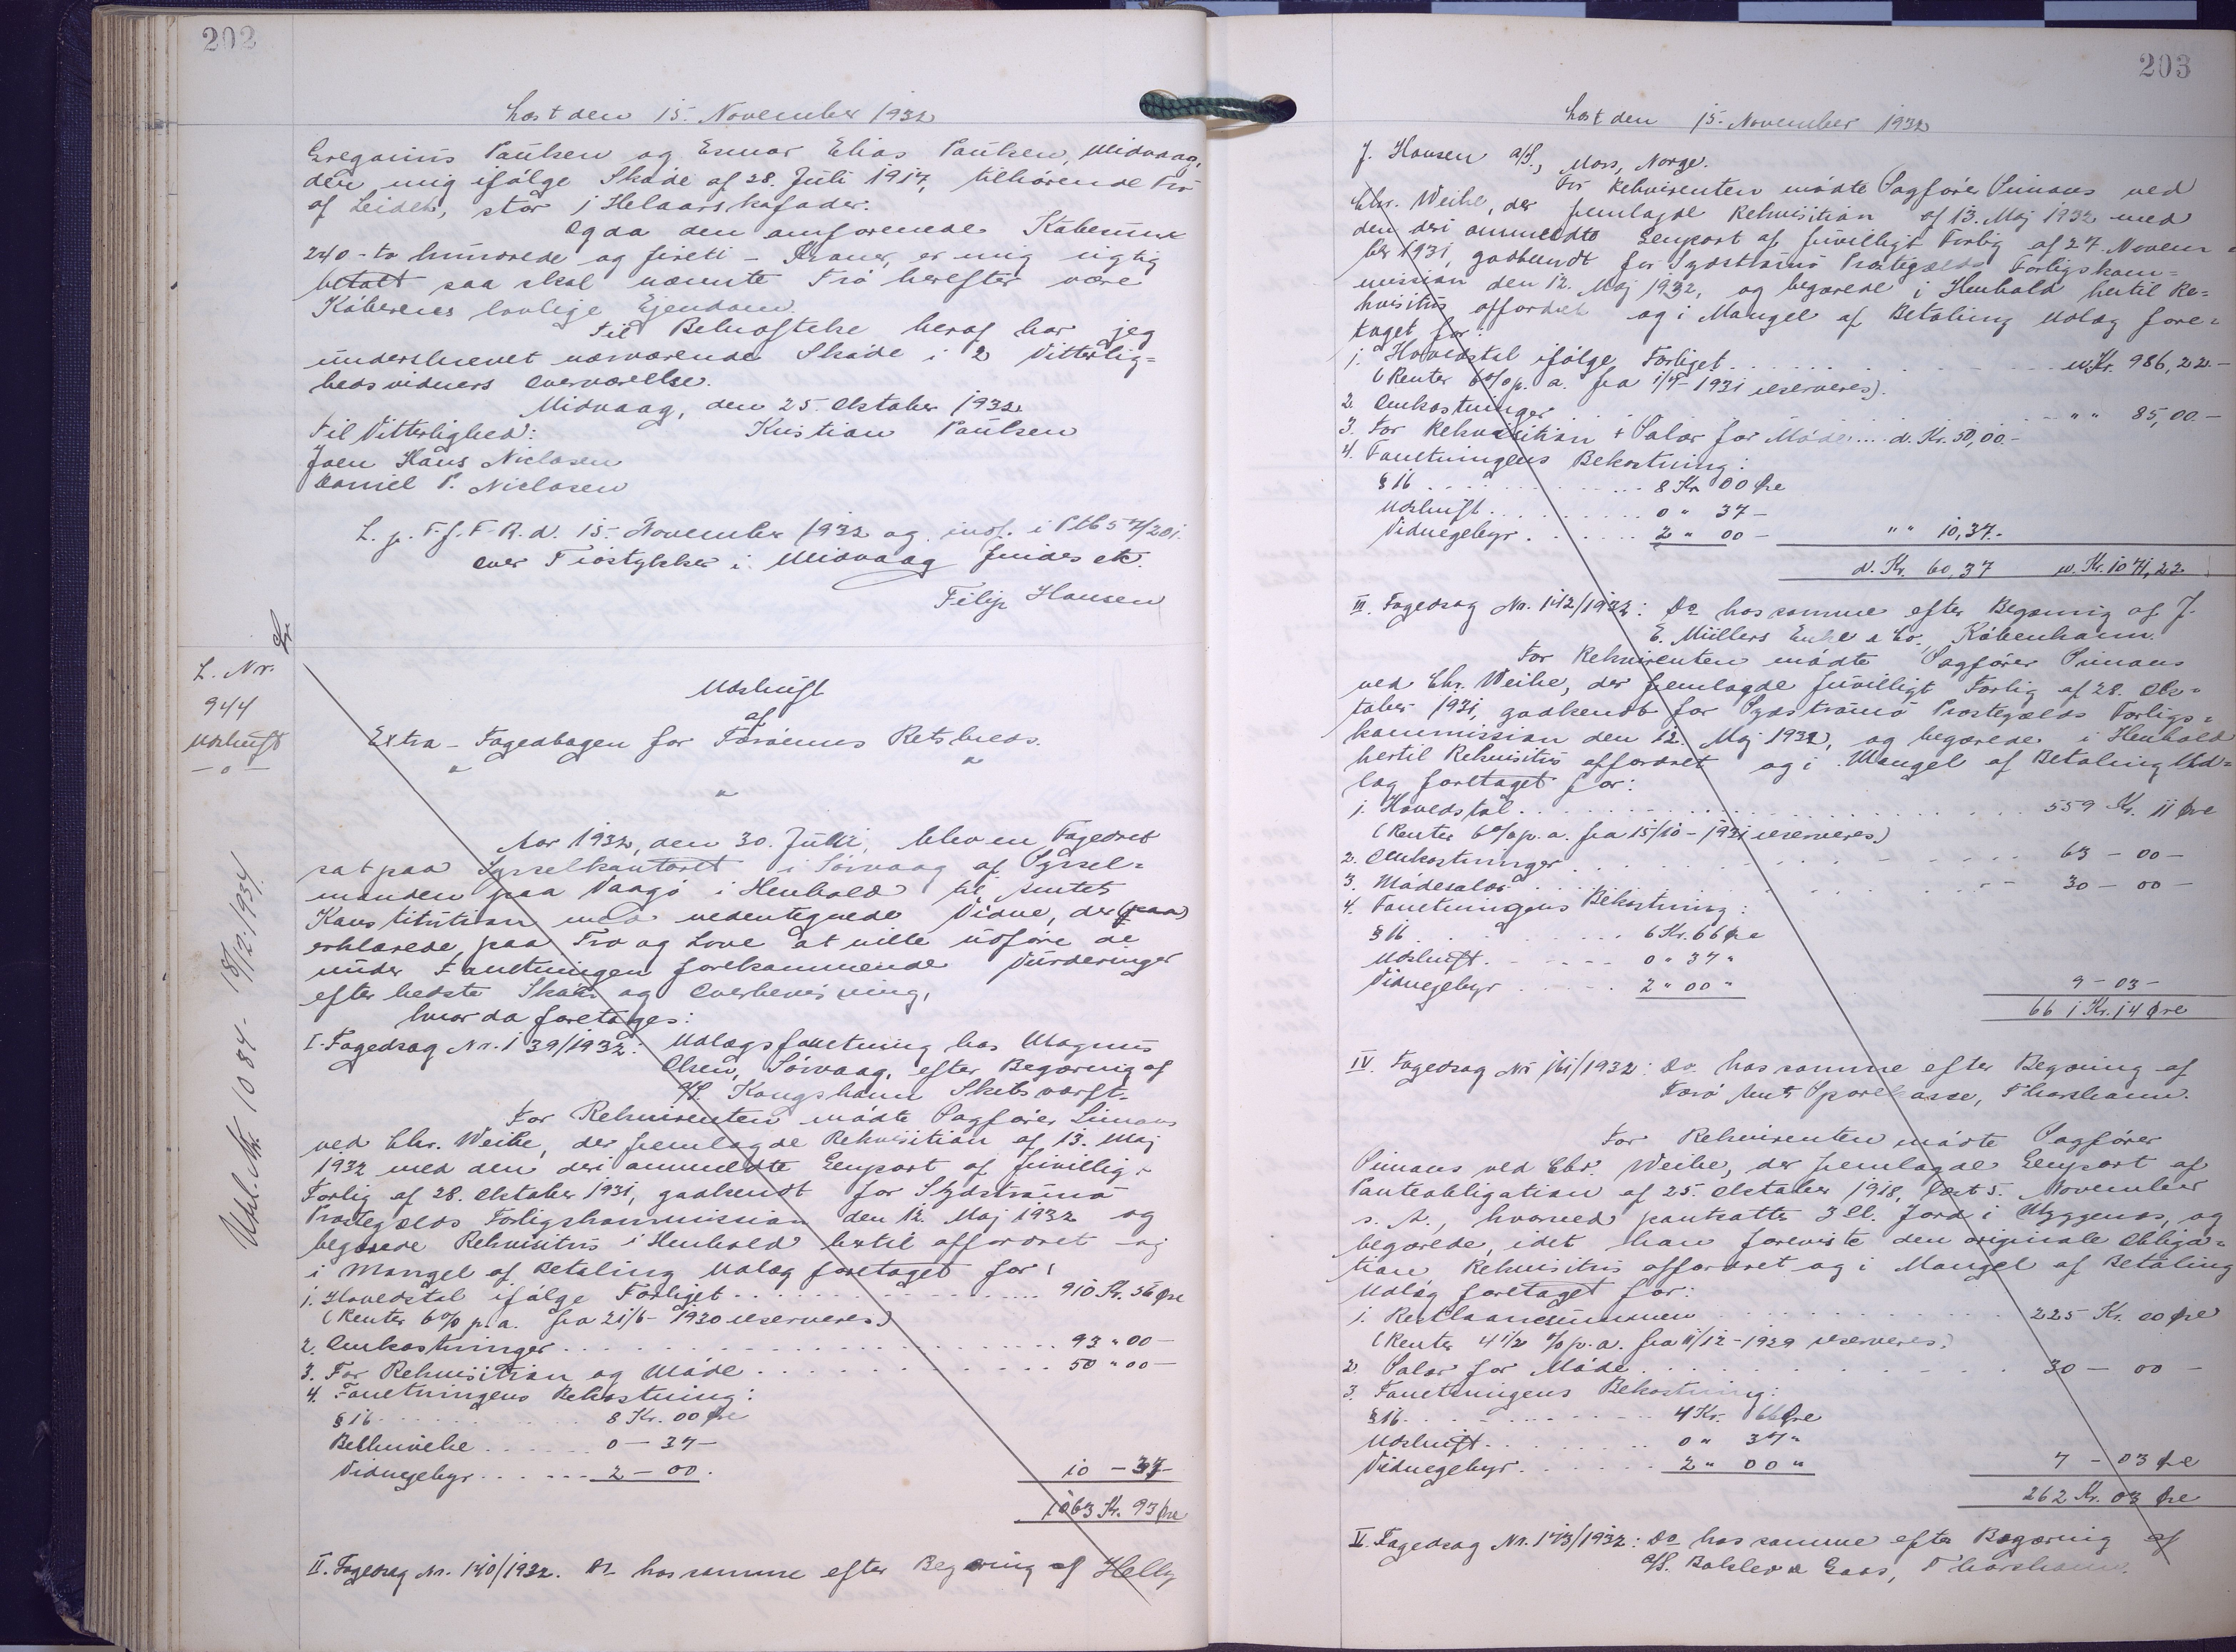 202
Læst den 15. November 1932
Gregorius Paulsen og Esmar Elias Paulsen, Midvaag,
den mig ifölge Sköde af 28. Juli 1917, tilhörende Trö
af Leiden, stor 1 Helaarskofoder.
Og da den omforenede Köbesum
240 - to hundrede og fireti - Kroner, er mig rigtig
betalt saa skal nævnte Trö herefter være
Köberens lovlige Ejendom.
Til Bekræftelse heraf har jeg
underskrevet nærværende Sköde i 2 Vitterlig=
hedsvidners Overværelse.
Midvaag, den 25. Oktober 1932
Til Vitterlighed: Kristian Paulsen
Joen Hans Niclasen
Daniel P. Niclasen
L. p. F. f. F. R. d. 15. November 1932 og indf. i Ptb 57/201.
Over Tröstykker i Midvaag findes etc.
Filip Hansen
L. Nr.
944
Udskrift
- o -
Udsl. Nr. 1084 - 18/12.1934.
Udskrift
af
Extra-Fogedbogen for Færöernes Retskreds.
" " "
Aar 1932, den 30. Juli, blev en Fogedret
sat paa Sysselkontoret i Sörvaag af Syssel=
manden paa Vaagö i Henhold til Amtets
Konstitution med nedentegnede Vidne, der (paa)
erklærede paa Tro og Love at ville udföre de
under Forretningen forekommende Vurderinger
efter bedste Skön og Overbevisning,
hvor da foretoges:
I. Fogedsag Nr. 139/1932: Udlægsforretning hos Magnus
Olsen, Sörvaag, efter Begæring af
A/S. Kongshavn Skibsværft.
For Rekvirenten mödte Sagförer Simans
ved Chr. Weihe, der fremlagde Rekvisition af 13. Maj
1932 med den deri anmeldte Genpart af frivilligt
Forlig af 28. Oktober 1931, godkendt for Sydströmö
Præstegælds Forligskommission den 12. Maj 1932 og
begærede Rekvisitus i Henhold hertil affordret og
i Mangel af Betaling Udlæg foretaget for:
1. Hovedstol ifölge Forliget . . . . . . 910 Kr. 56 Øre
(Renter 6% p. a. fra 21/6-1930 reserveres)
2. Omkostninger . . . . . . 93 " 00 -
3. For Rekvisition og Möde . . . . . . 50 " 00 -
4. Forretningens Bekostning:
§ 16 . . . . . . 8 Kr. 00 Øre
Beskrivelse . . . . . . 0 - 37 -
Vidnegebyr . . . . . . 2 - 00. 10 - 37 -
1063 Kr. 93 Øre
II. Fogedsag Nr. 140/1932. Do hos samme efter Begæring af Helly
203
Læst den 15. November 1932
J. Hansen A/S., Moss, Norge.
For Rekvirenten mödte Sagförer Simans ved
Chr. Weihe, der fremlagde Rekvisition af 13. Maj 1932 med
den deri anmeldte Genpart af frivilligt Forlig af 27. Novem=
ber 1931, godkendt for Sydströmö Præstegælds Forligskom=
mission den 12. Maj 1932, og begærede i Henhold hertil Re=
kvisitus affordret og i Mangel af Betaling Udlæg fore=
taget for:
1. Hovedstol ifölge Forliget . . . . . . n. Kr. 986,22 -
(Renter 6% p. a. fra 1/4-1931 reserveres).
2. Omkostninger . . . . . . " " 85,00 -
3. For Rekvisition + Salær for Möde . . . . d. Kr. 50,00 -
4. Forretningens Bekostning:
§ 16 . . . . . . 8 Kr 00 Øre
Udskrift . . . . . . 0 " 37 -
Vidnegebyr . . . . . . 2 " 00 - " " 10,37 -
d. Kr. 60,37 n. Kr. 1071,22
III. Fogedsag Nr. 142/1932: Do hos samme efter Begæring af J.
E. Müllers Enke & Co., Københavnn.
For Rekvirenten mödte Sagförer Simans
ved Chr. Weihe, der fremlagde frivilligt Forlig af 28. Ok=
tober 1931, godkendt for Sydströmö Præstegælds Forligs=
kommission den 12. Maj 1932, og begærede i Henhold
hertil Rekvisitus affordret og i Mangel af Betaling Ud=
læg foretaget for:
1. Hovedstol . . . . . . 559 Kr. 11 Øre
(Renter 6% p. a. fra 15/10-1931 reserveres)
2. Omkostninger . . . . . . 63 - 00 -
3. Mödesalær . . . . . . 30 - 00 -
4. Forretningens Bekostning:
§ 16 . . . . . . 6 Kr. 66 Øre
Udskrift . . . . . . 0 " 37 "
Vidnegebyr . . . . . . 2 " 00 " 9 - 03 -
661 Kr. 14 Øre
IV. Fogedsag Nr 161/1932: Do. hos samme efter Begæring af
Færö Amts Sparekasse, Thorshavn.
For Rekvirenten mödte Sagförer
Simans ved Chr. Weihe, der fremlagde Genpart af
Panteobligation af 25. Oktober 1918, læst 5. November
s. A., hvorved pantsattes 3 Gl. Jord i Myggenæs, og
begærede, idet han foreviste den originale Obliga=
tion Rekvisitus affordret og i Mangel af Betaling
Udlæg foretaget for:
1. Restlaanesummen . . . . . . 225 Kr. 00 Øre
(Renter 4 1/2 % p. a. fra 11/12-1929 reserveres.)
2. Salær for Möde . . . . . . 30 - 00 -
3. Forretningens Bekostning:
§ 16 . . . . . . 4 Kr. 66 Øre
Udskrift . . . . . . 0 " 37 "
Vidnegebyr . . . . . . 2 " 00 " 7 - 03 Øre
262 Kr. 03 Øre
V. Fogedsag Nr. 173/1932: Do hos samme efter Begæring af
A/S. Balslev & Gaas, Thorshavn.